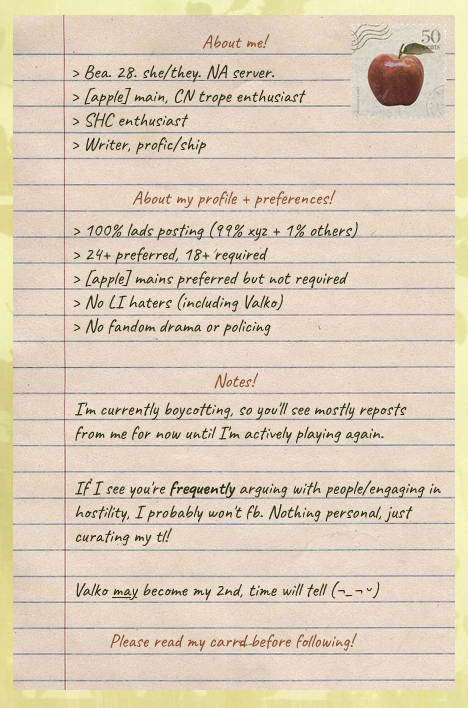 50
cents
About me!
> Bea. 28. she/they. NA server.
> [apple] main, CN trope enthusiast
> SHC enthusiast
> Writer, profic/ship
About my profile + preferences!
> 100% lads posting (99% xyz + 1% others)
> 24+ preferred, 18+ required
> [apple] mains preferred but not required
> No LI haters (including Valko)
> No fandom drama or policing
Notes!
I'm currently boycotting, so you'll see mostly reposts
from me for now until I'm actively playing again.
If I see you're frequently arguing with people/engaging in
hostility, I probably won't fb. Nothing personal, just
curating my tl!
Valko may become my 2nd, time will tell (¬_¬ᵕ)
Please read my carrd before following!